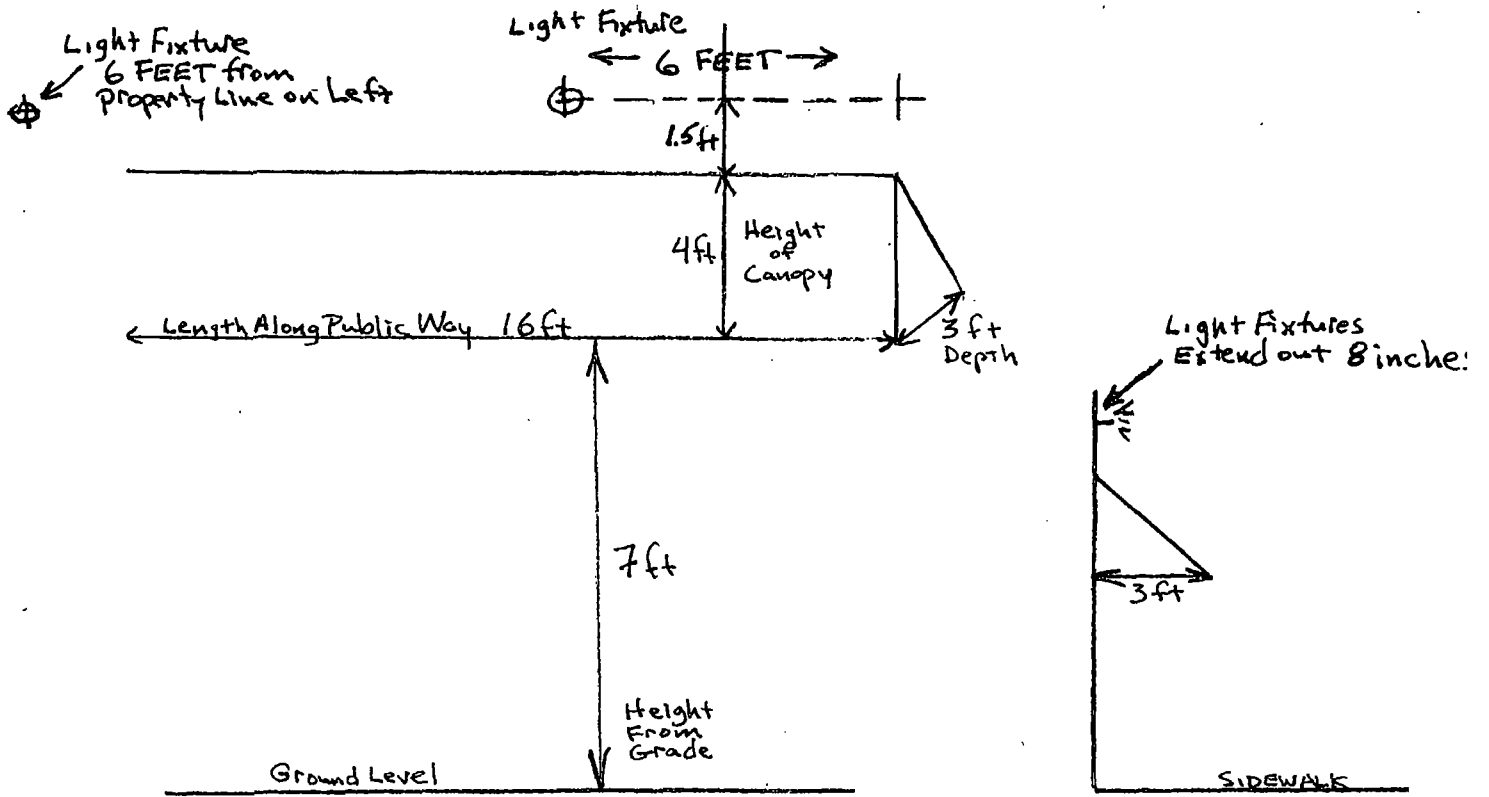 Light Fixture
6 FEET from
Property Line on Left
Light Fixture
6 FEET
1.5ft
4ft
Height
of
Canopy
Length Along Public Way 16ft
3ft
Depth
Light Fixtures
Extend out 8 inche:
7ft
3ft
Height
From
Grade
Ground Level
SIDEWALK